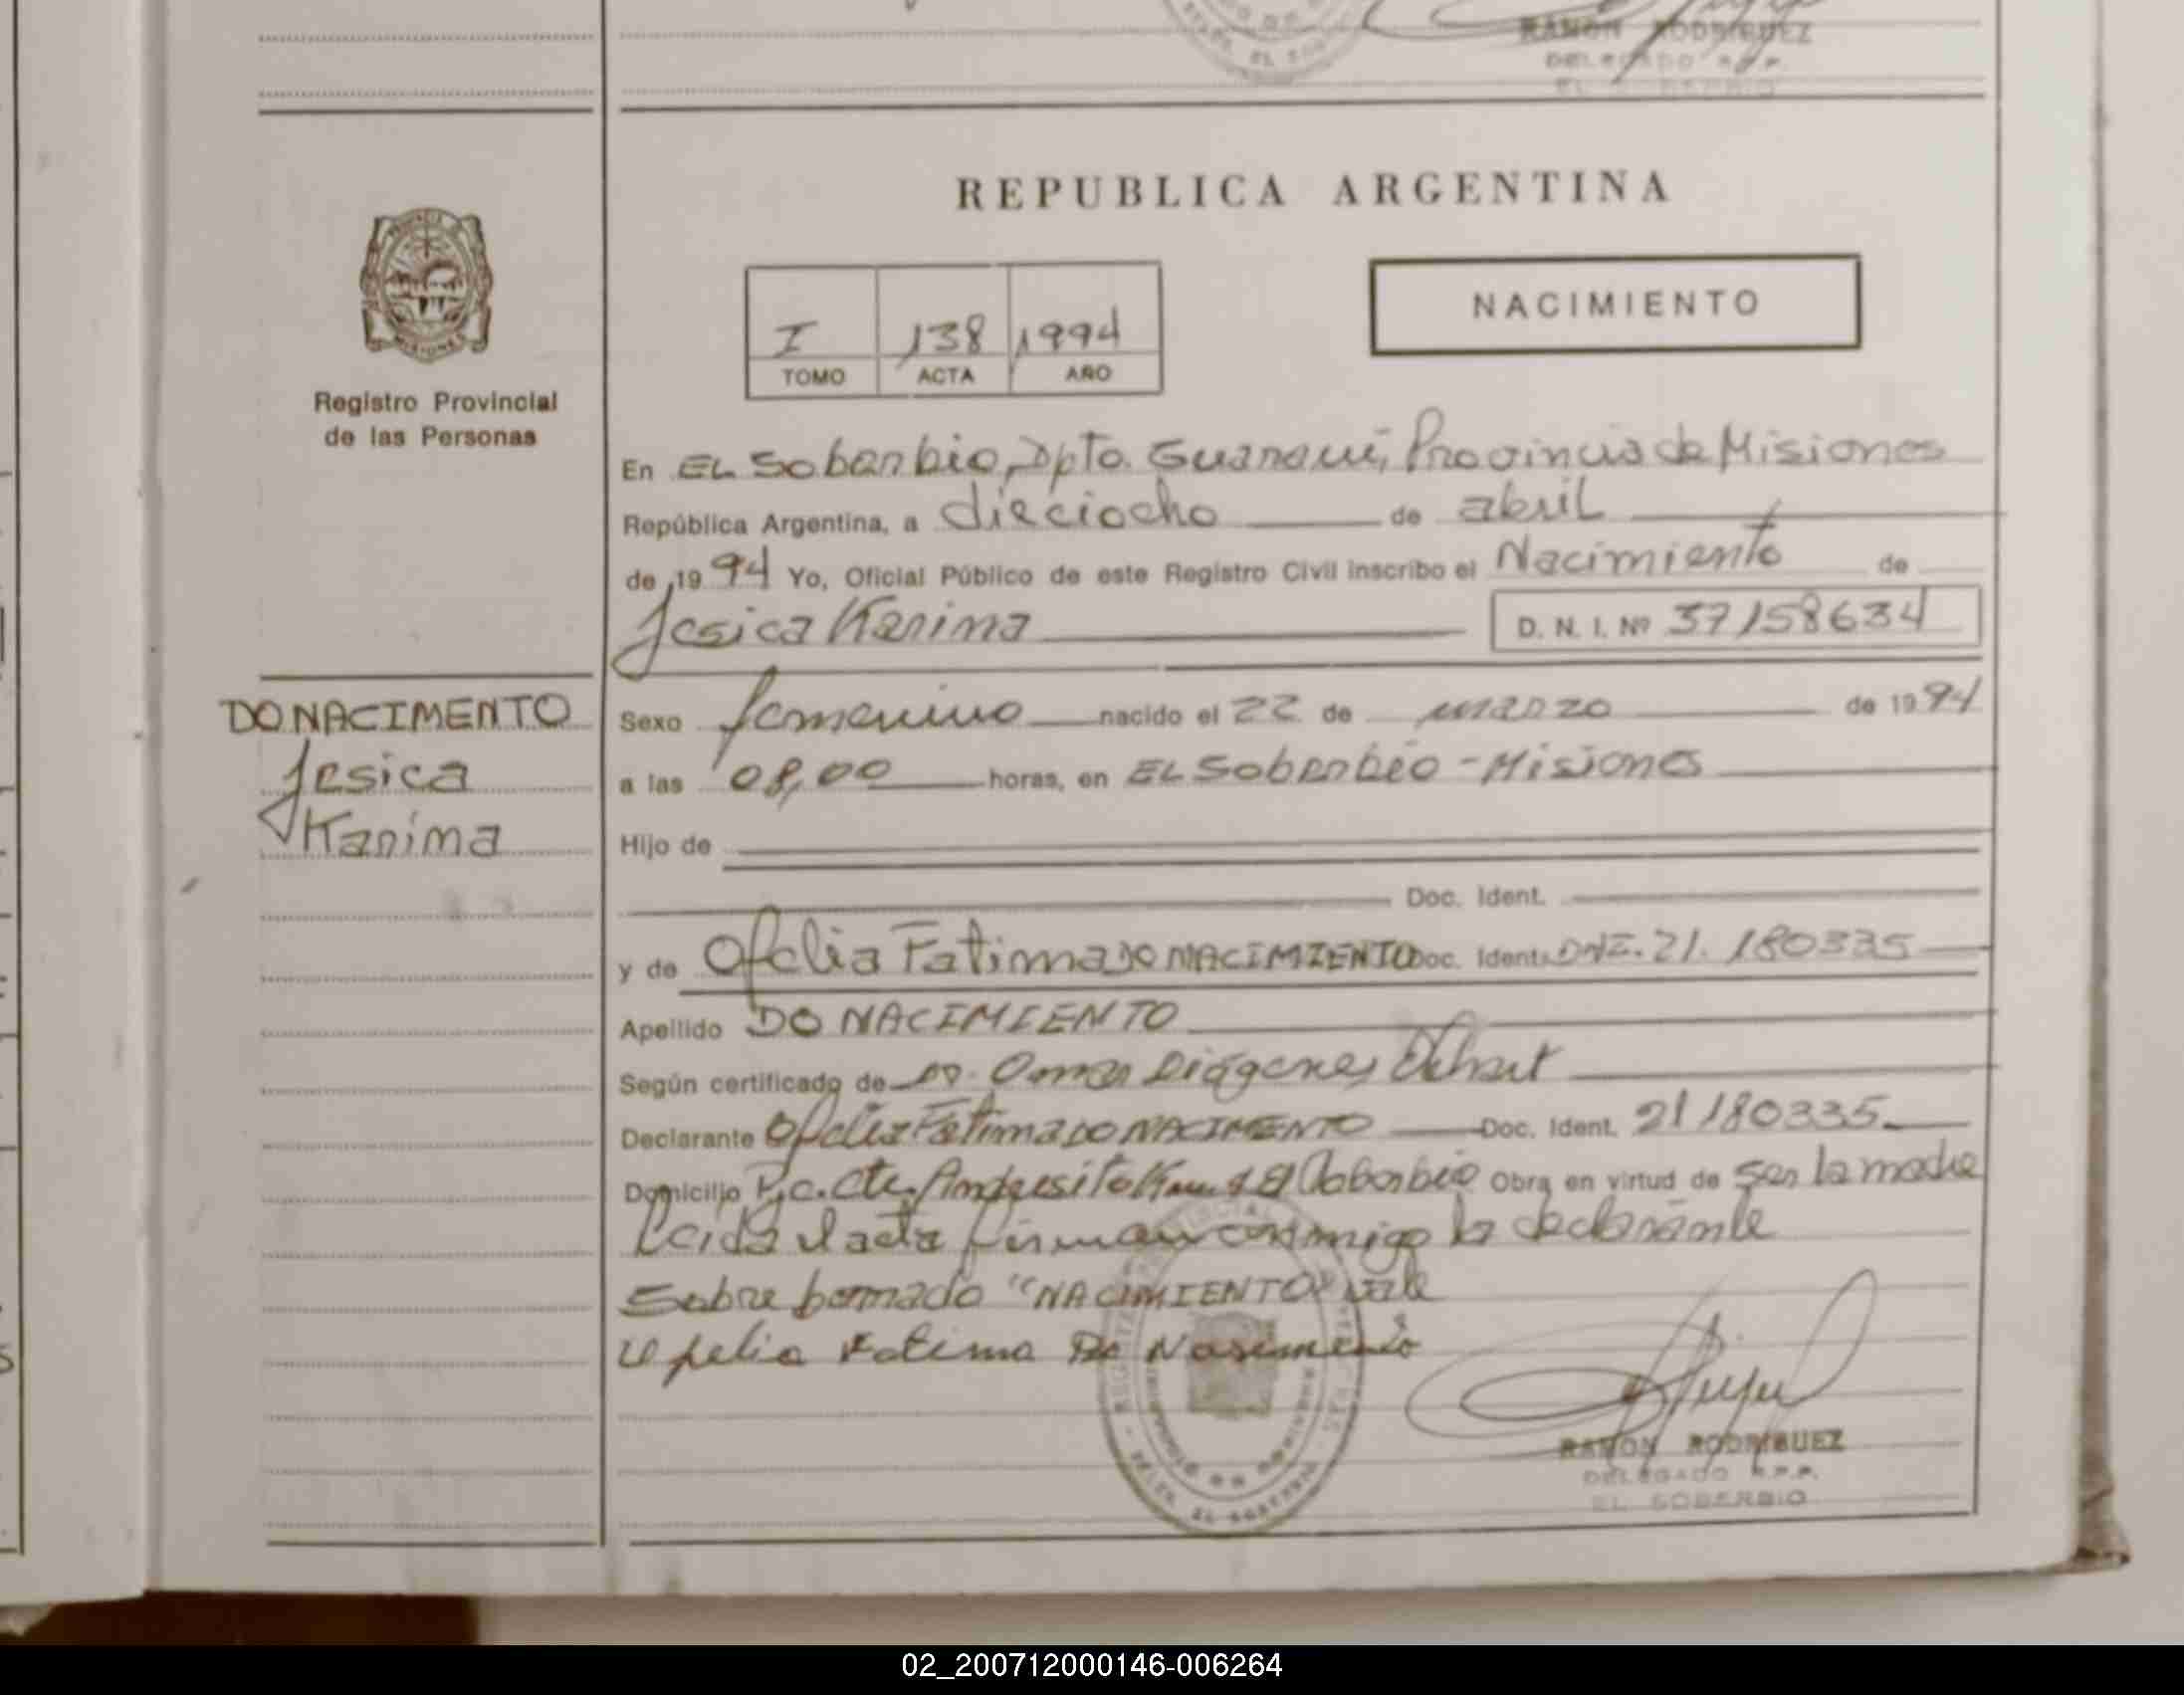 RAMON RODRIGUEZ
DELEGADO R.P.P.
REPUBLICA ARGENTINA
NACIMIENTO
I 138 1994
TOMO ACTA AÑO
Registro Provincial
de las Personas
En EL Soberbio, Dpto. Guaraní, Provincia de Misiones
República Argentina, a dieciocho de abril
de 1994 Yo, Oficial Público de este Registro Civil inscribo el Nacimiento de
Jesica Karina D. N. I. Nº 37158634
DO NACIMENTO
Jesica
Karina
Sexo femenino nacido el 22 de marzo de 1994
a las 08,00 horas, en EL Soberbio - Misiones
Hijo de
Doc. Ident.
y de Ofelia Fatima DO NACIMIENTO Doc. Ident. DNI. 21.180335
Apellido DO NACIMIENTO
Según certificado de Dr. Omar Diógenes
Declarante Ofelia Fatima DO NACIMENTO Doc. Ident. 21180335
Domicilio Pje. Cte. Andresito Km. El Soberbio Obra en virtud de ser la madre
Leida el acta firman conmigo la declarante
Sobre borrado "NACIMIENTO" vale
Ofelia Fatima Do Nasimento
RAMON RODRIGUEZ
DELEGADO R.P.P.
EL SOBERBIO
02_200712000146-006264